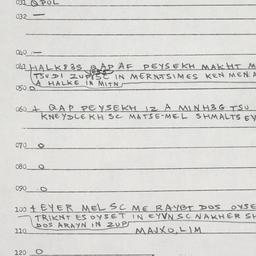 031 Q POL
032 —
040 —
041 HALKE3S QAP AF PEYSEKH MAKHT M
TSUDI ZUP/SC IN MERNTSIMES KEN MENA
A HALKE IN MITN
050 O
060 + QAP PEYSEKH IZ A MINH3G TSU
KNEYDLEKH SC MATSE-MEL SHMALTS EY
070 O
080 O
090 O
100 + EYER MEL SC ME RAYBT DOS OYSE
TRIKNT ES OYSET IN EYVN SC NAKHER SH
DOS ARAYN IN ZUP
110 MAJXO, LIM
120 O